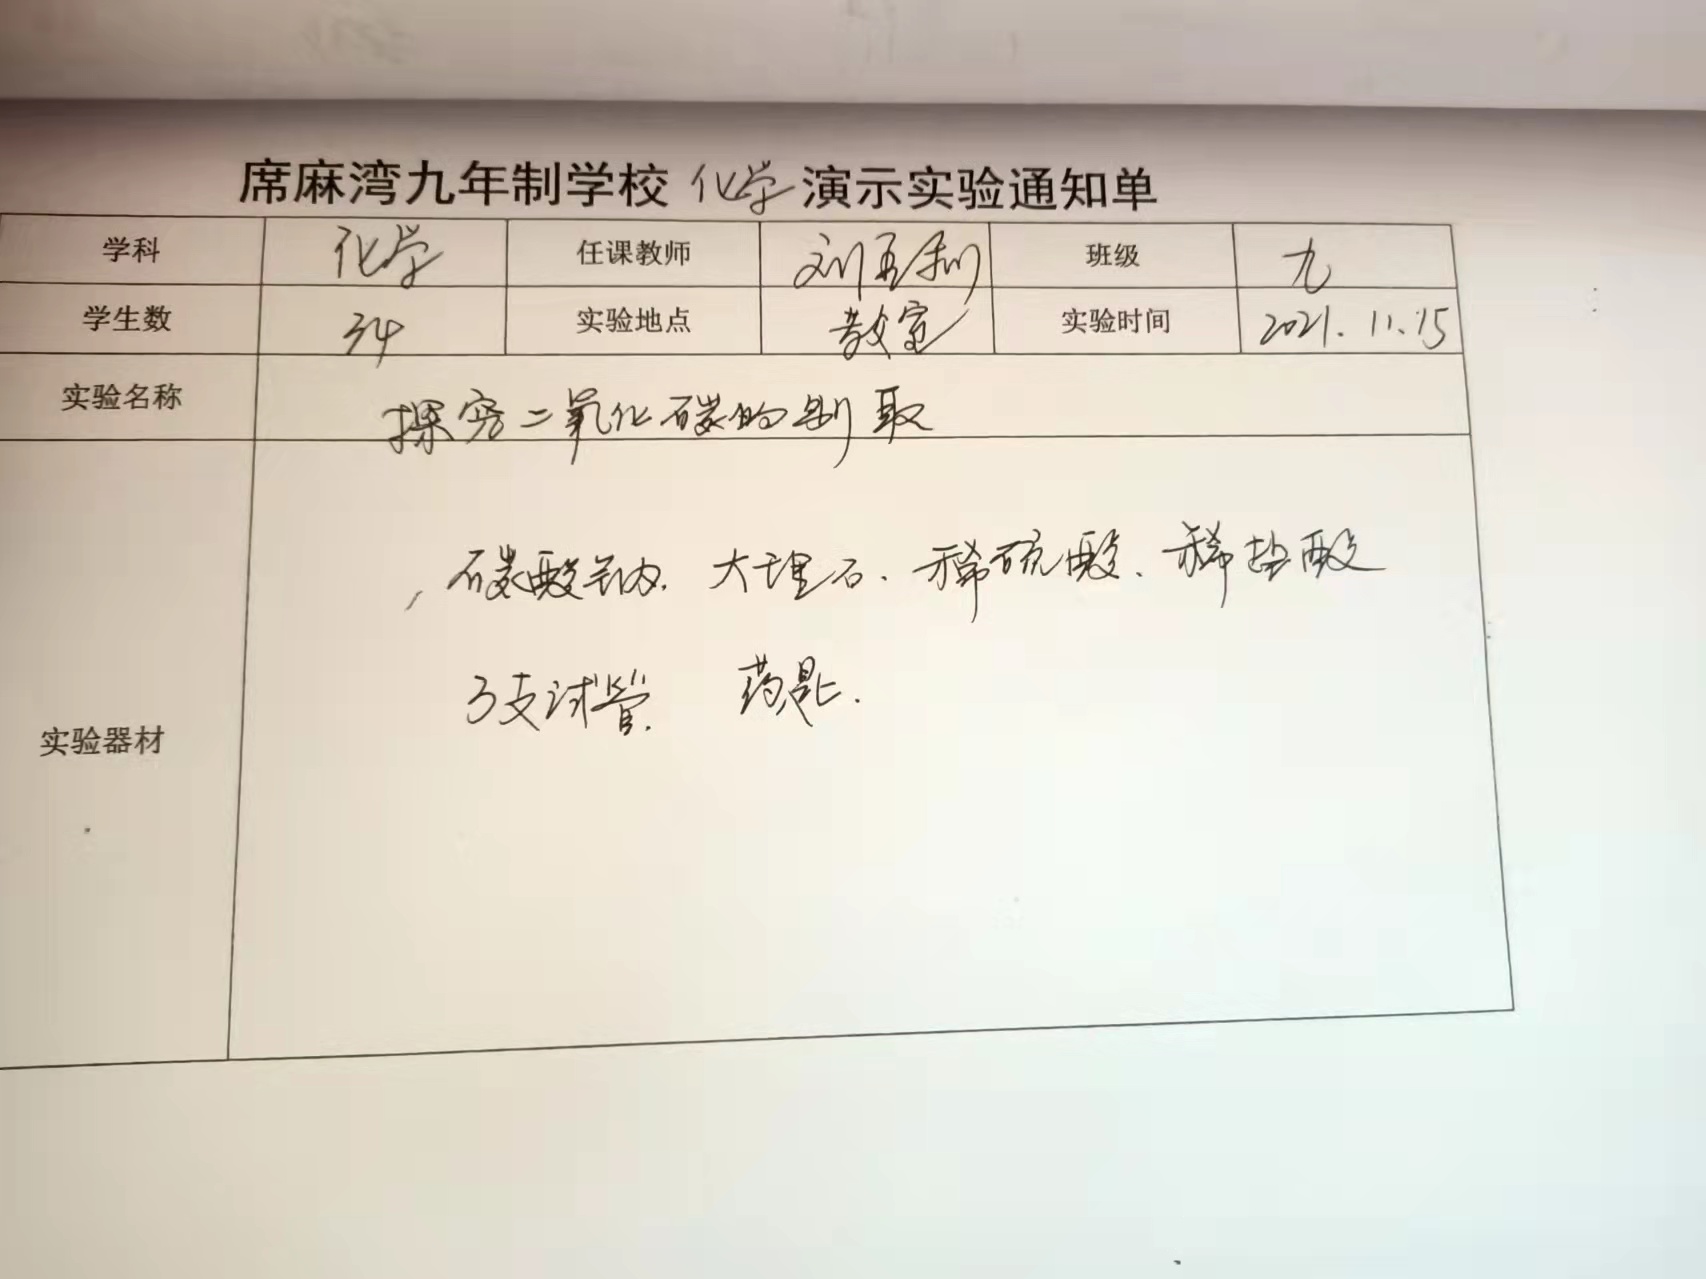 席麻湾九年制学校 化学 演示实验通知单
学科 化学 任课教师 刘玉利 班级 九
学生数 34 实验地点 教室 实验时间 2021.11.15
实验名称 探究二氧化碳的制取
碳酸钠、大理石、稀硫酸、稀盐酸
3支试管、药匙.
实验器材